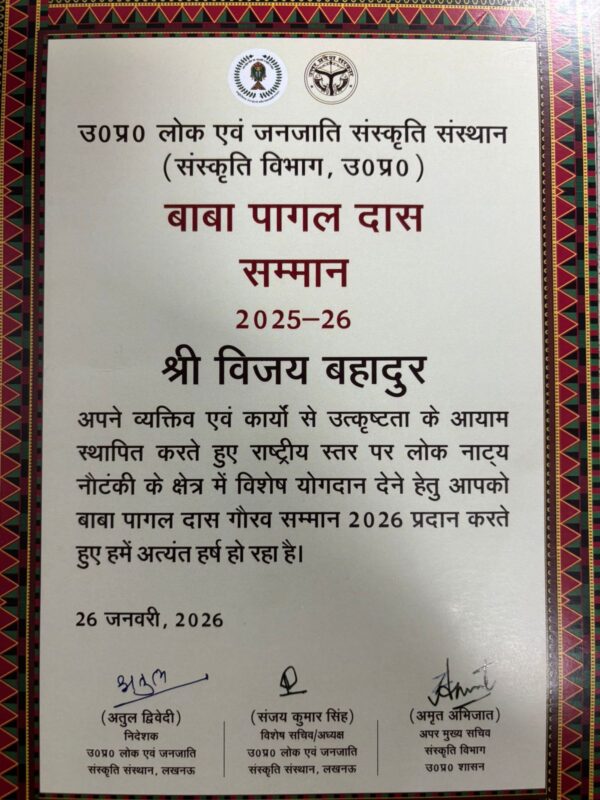 उ0प्र0 लोक एवं जनजाति संस्कृति संस्थान
(संस्कृति विभाग, उ0प्र0)
बाबा पागल दास
सम्मान
2025–26
श्री विजय बहादुर
अपने व्यक्तिव एवं कार्यो से उत्कृष्टता के आयाम
स्थापित करते हुए राष्ट्रीय स्तर पर लोक नाट्य
नौटंकी के क्षेत्र में विशेष योगदान देने हेतु आपको
बाबा पागल दास गौरव सम्मान 2026 प्रदान करते
हुए हमें अत्यंत हर्ष हो रहा है।
26 जनवरी, 2026
अतुल
(अतुल द्विवेदी)
निदेशक
उ0प्र0 लोक एवं जनजाति
संस्कृति संस्थान, लखनऊ
(संजय कुमार सिंह)
विशेष सचिव/अध्यक्ष
उ0प्र0 लोक एवं जनजाति
संस्कृति संस्थान, लखनऊ
(अमृत अभिजात)
अपर मुख्य सचिव
संस्कृति विभाग
उ0प्र0 शासन